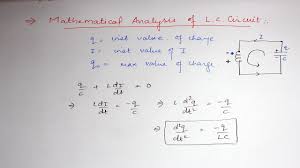 → Mathematical Analysis of L.C. Circuit :.
q = inst value of charge
I = inst value of I
q₀ = max value of charge
I
q/C + L dI/dt = 0
⇒ L dI/dt = -q/C ⇒ L d²q/dt² = -q/C
⇒ d²q/dt² = -q/LC